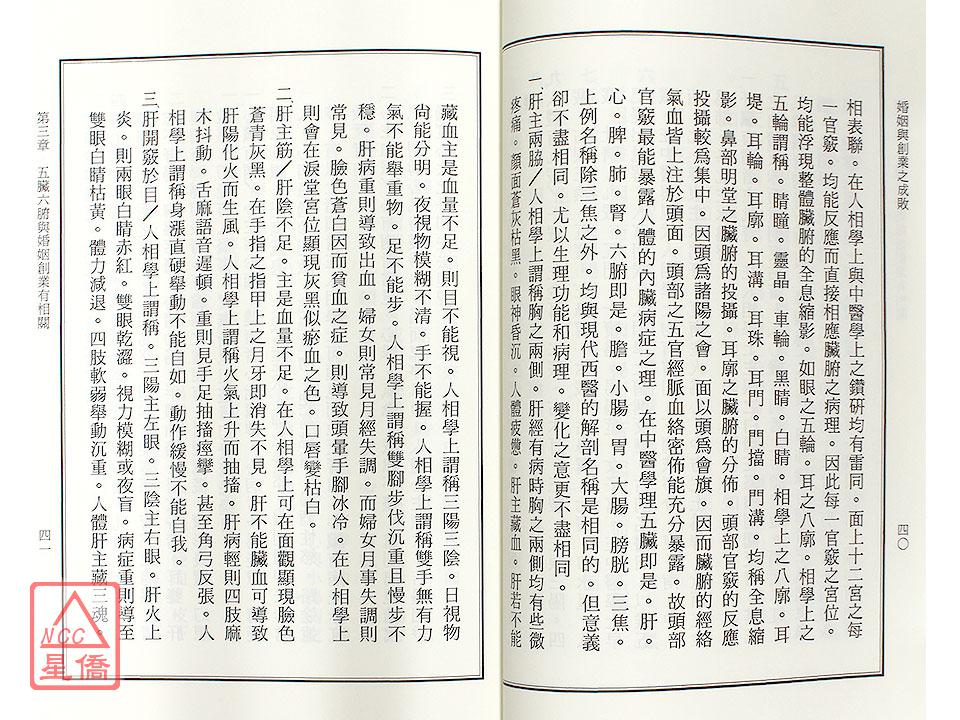 婚姻與創業之成敗
四〇
相表聯。在人相學上與中醫學上之鑽研均有雷同。面上十二宮之每
一官竅。均能反應而直接相應臟腑之病理。因此每一官竅之宮位。
均能浮現整體臟腑的全息縮影。如眼之五輪。耳之八廓。相學上之
五輪謂稱。睛瞳。靈晶。車輪。黑睛。白睛。相學上之八廓。耳
堤。耳輪。耳廓。耳溝。耳珠。耳門。門擋。門溝。均稱全息縮
影。鼻部明堂之臟腑的投攝。耳廓之臟腑的分佈。頭部官竅的反應
投攝較為集中。因頭為諸陽之會。面以頭為會旗。因而臟腑的經絡
氣血皆上注於頭面。頭部之五官經脈血絡密佈能充分暴露。故頭部
官竅最能暴露人體的內臟病症之理。在中醫學理五臟即是。肝。
心。脾。肺。腎。六腑即是。膽。小腸。胃。大腸。膀胱。三焦。
上例名稱除三焦之外。均與現代西醫的解剖名稱是相同的。但意義
卻不盡相同。尤以生理功能和病理。變化之意更不盡相同。
一、肝主兩脇/人相學上謂稱胸之兩側。肝經有病時胸之兩側均有些微
疼痛。顏面蒼灰枯黑。眼神昏沉。人體疲憊。肝主藏血。肝若不能
藏血主是血量不足。則目不能視。人相學上謂稱三陽三陰。日視物
尚能分明。夜視物模糊不清。手不能握。人相學上謂稱雙手無有力
氣不能舉重物。足不能步。人相學上謂稱雙腳步伐沉重且慢步不
穩。肝病重則導致出血。婦女則常見月經失調。而婦女月事失調則
常見。臉色蒼白因而貧血之症。則導致頭暈手腳冰冷。在人相學上
則會在淚堂宮位顯現灰黑似瘀血之色。口唇變枯白。
二、肝主筋/肝陰不足。主是血量不足。在人相學上可在面觀顯現臉色
蒼青灰黑。在手指之指甲上之月牙即消失不見。肝不能臟血可導致
肝陽化火而生風。人相學上謂稱火氣上升而抽搐。肝病輕則四肢麻
木抖動。舌麻語音遲頓。重則見手足抽搐痙攣。甚至角弓反張。人
相學上謂稱身漲直硬舉動不能自如。動作緩慢不能自我。
三、肝開竅於目/人相學上謂稱。三陽主左眼。三陰主右眼。肝火上
炎。則兩眼白睛赤紅。雙眼乾澀。視力模糊或夜盲。病症重則導至
雙眼白睛枯黃。體力減退。四肢軟弱舉動沉重。人體肝主藏三魂。
第三章　五臟六腑與婚姻創業有相關
四一
NCC
星僑